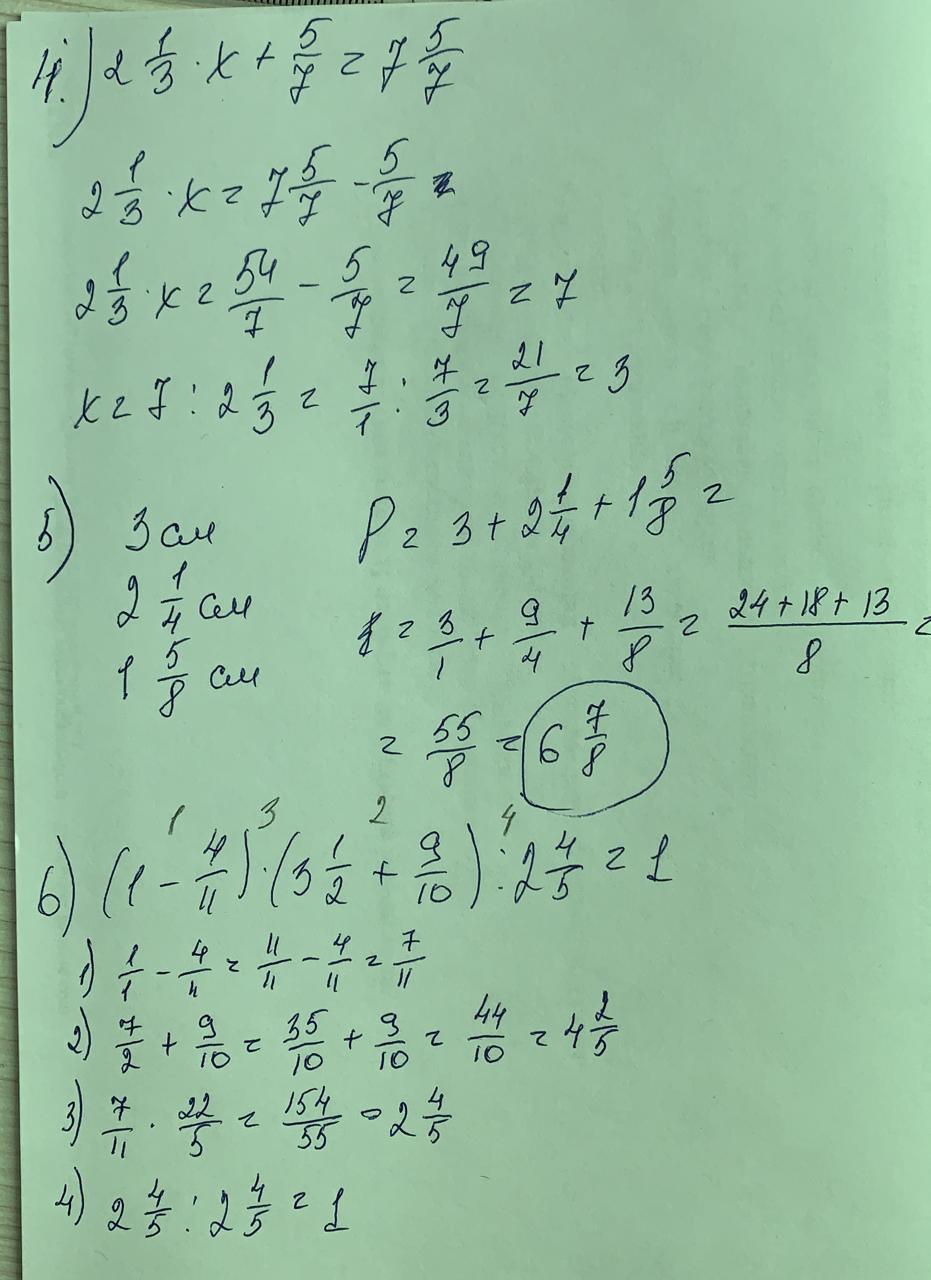 4.) 2 1/3 · x + 5/7 = 7 5/7
2 1/3 · x = 7 5/7 - 5/7 =
2 1/3 · x = 54/7 - 5/7 = 49/7 = 7
x = 7 : 2 1/3 = 7/1 : 7/3 = 21/7 = 3
5) 3 см P = 3 + 2 1/4 + 1 5/8 =
2 1/4 см = 3/1 + 9/4 + 13/8 = (24+18+13)/8 =
1 5/8 см
= 55/8 = 6 7/8
1 3 2 4
6) (1 - 4/11) · (3 1/2 + 9/10) : 2 4/5 = 1
1) 1/1 - 4/11 = 11/11 - 4/11 = 7/11
2) 7/2 + 9/10 = 35/10 + 9/10 = 44/10 = 4 2/5
3) 7/11 · 22/5 = 154/55 = 2 4/5
4) 2 4/5 : 2 4/5 = 1